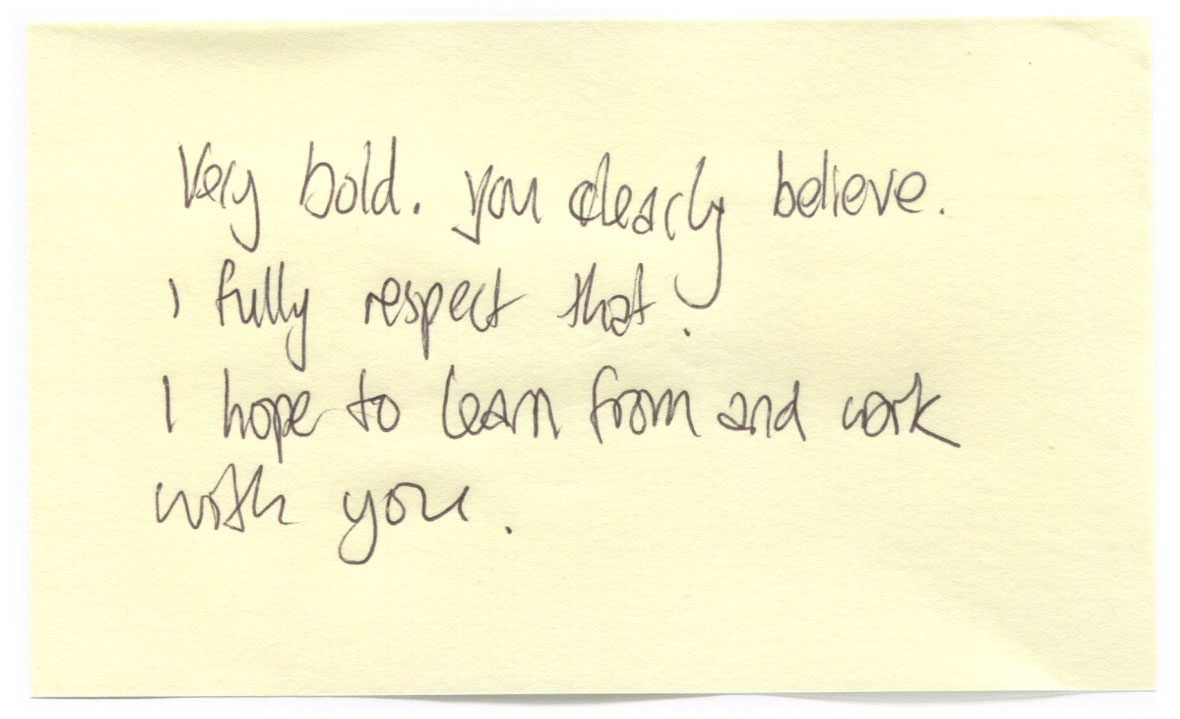 Very bold. you clearly believe.
I fully respect that.
I hope to learn from and work
with you.